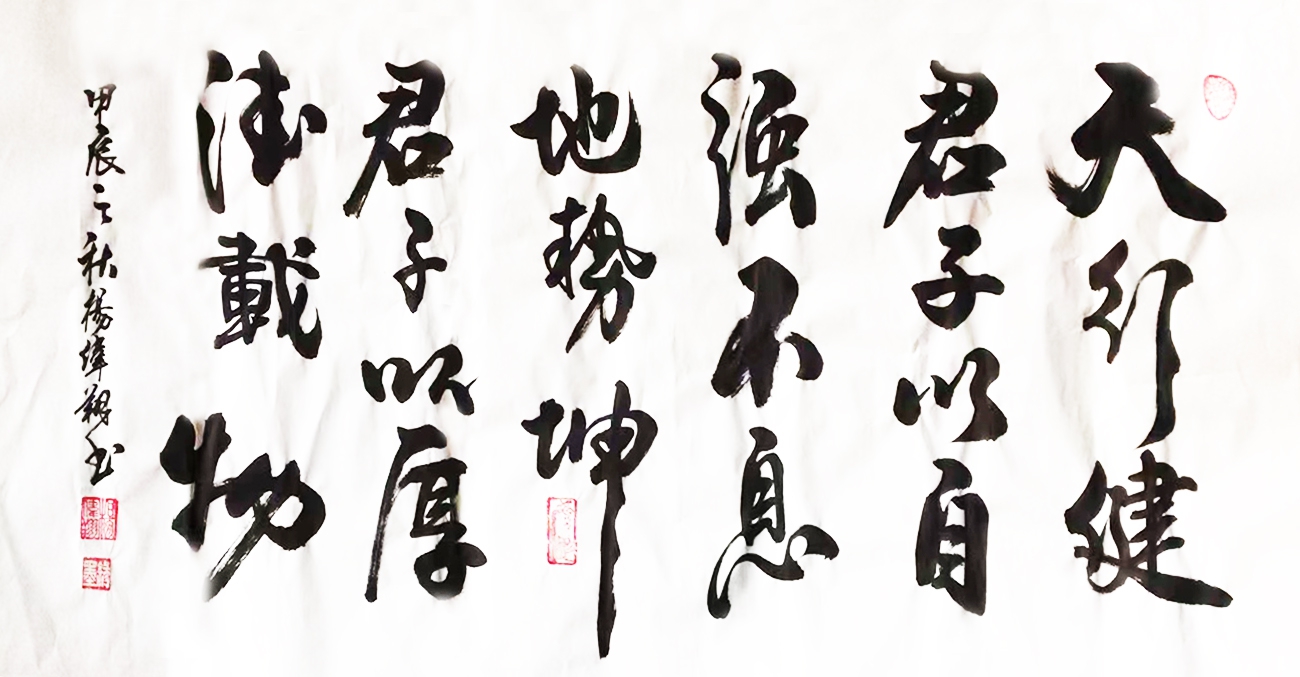 天行健
君子以自
强不息
地势坤
君子以厚
德載物
甲辰之秋楊偉翔书